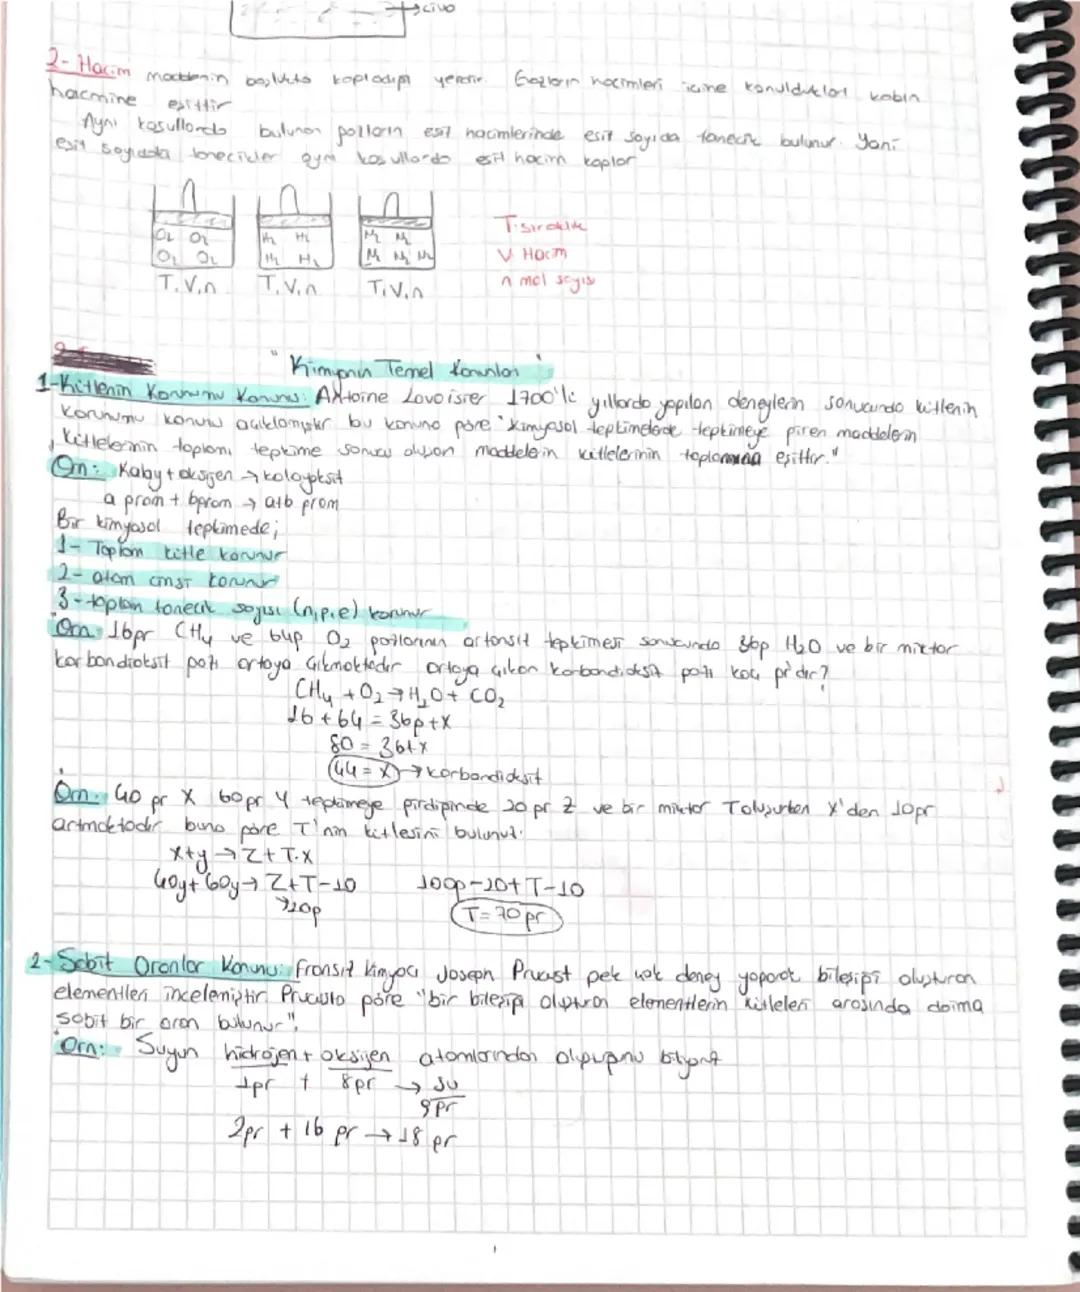 civa
2- Hacim maddenin boşlukta kapladığı yerdir. Gazların hacimleri içine konuldukları kabın
hacmine eşittir
Aynı koşullarda bulunan gazların eşit hacimlerinde eşit sayıda tanecik bulunur. Yani
eşit sayıda tanecikler aynı koşullarda eşit hacim kaplar
O₂ O₂ H₂ H₂ N₂ N₂
O₂ O₂ H₂ H₂ N₂ N₂ N₂
T.V.n T.V.n T.V.n
T: sıcaklık
V Hacim
n mol sayısı
"Kimyanın Temel Kanunları"
1-Kütlenin Korunumu Kanunu: Antoine Lavoisier 1700'lü yıllarda yapılan deneylerin sonucunda kütlenin
korunumu kanunu açıklamıştır bu kanuna göre "kimyasal tepkimelerde tepkimeye giren maddelerin
kütlelerinin toplamı tepkime sonucu oluşan maddelerin kütlelerinin toplamına eşittir."
Örn: Kalay + oksijen → kalayoksit
a gram + b gram → a+b gram
Bir kimyasal tepkimede;
1- Toplam kütle korunur
2- atom cinsi korunur
3- toplam tanecik sayısı (n,p,e) korunur
Örn: 16gr CH₄ ve 64g O₂ gazlarının artansız tepkimesi sonucunda 36g H₂O ve bir miktar
karbondioksit gazı ortaya çıkmaktadır ortaya çıkan karbondioksit gazı kaç gr'dır?
CH₄ + O₂ → H₂O + CO₂
16 + 64 = 36g + x
80 = 36+x
44 = x → karbondioksit
Örn: 40 gr X 60 gr Y tepkimeye girdiğinde 20 gr Z ve bir miktar T oluşurken X'den 10gr
artmaktadır buna göre T'nin kütlesini bulunuz.
x+y → Z+T.x
40g+60g → Z+T-10 100g-20+T-10
→20g T= 70 gr
2- Sabit Oranlar Kanunu: Fransız kimyacı Joseph Proust pek çok deney yaparak bileşiği oluşturan
elementleri incelemiştir. Prousta göre "bir bileşiği oluşturan elementlerin kütleleri arasında daima
sabit bir oran bulunur".
Örn: Suyun hidrojen + oksijen atomlarından oluştuğunu biliyoruz
1gr + 8gr → su
9gr
2gr + 16 gr → 18 gr